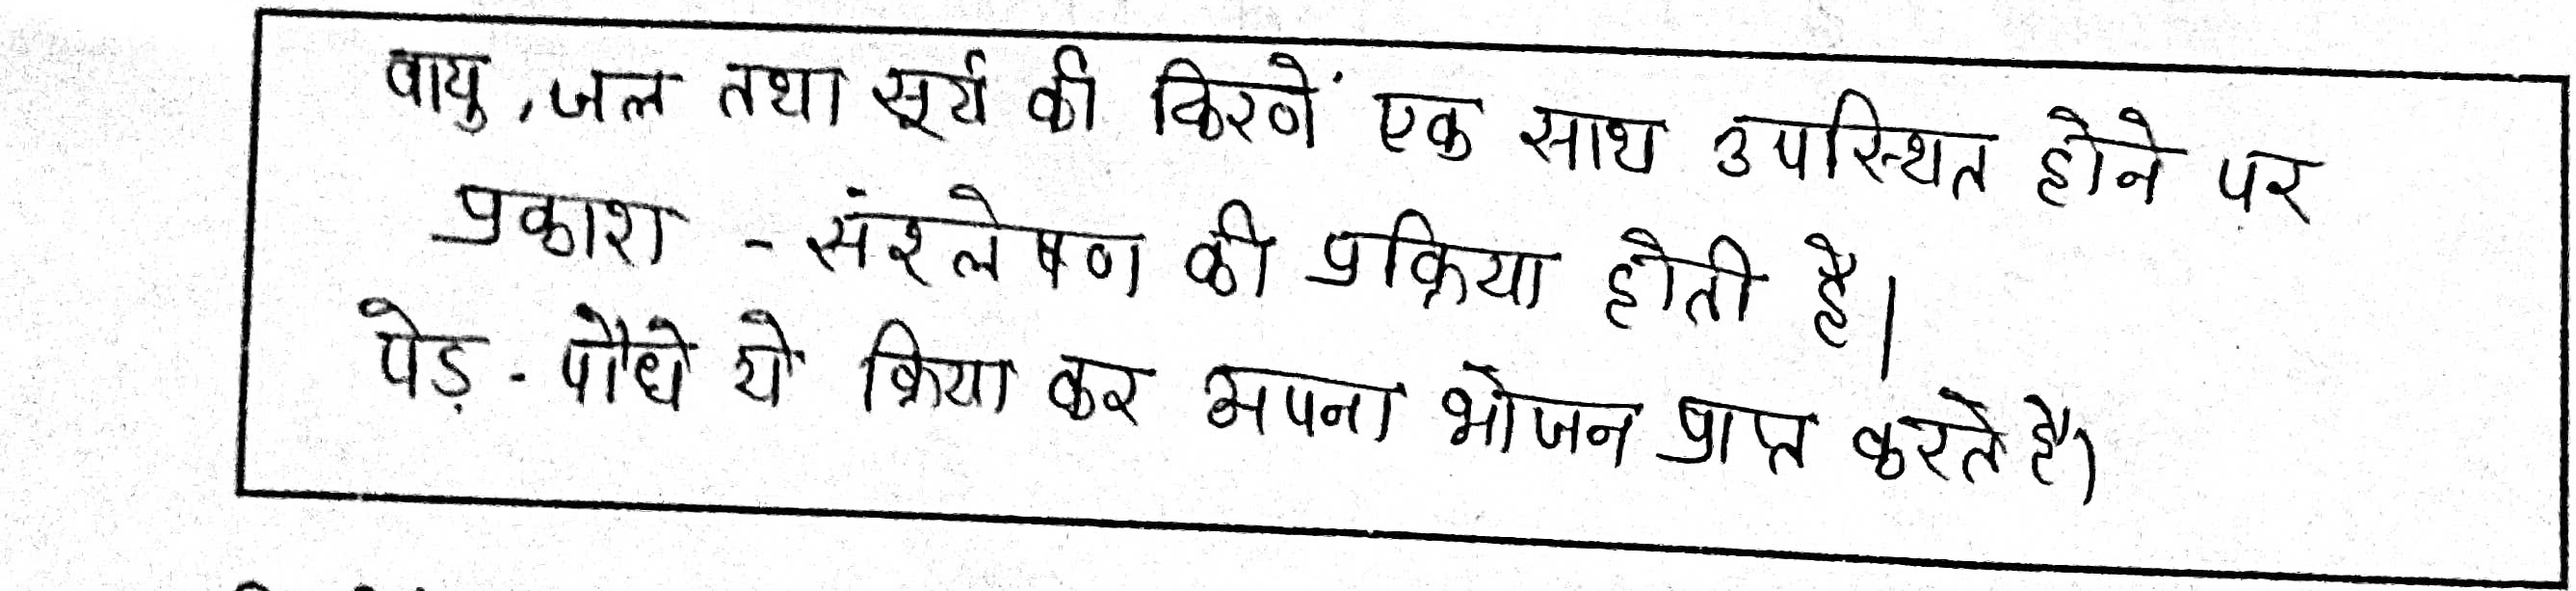 वायु, जल तथा सूर्य की किरणें एक साथ उपस्थित होने पर
प्रकाश - संश्लेषण की प्रक्रिया होती है।
पेड़ - पौधे ये क्रिया कर अपना भोजन प्राप्त करते है।